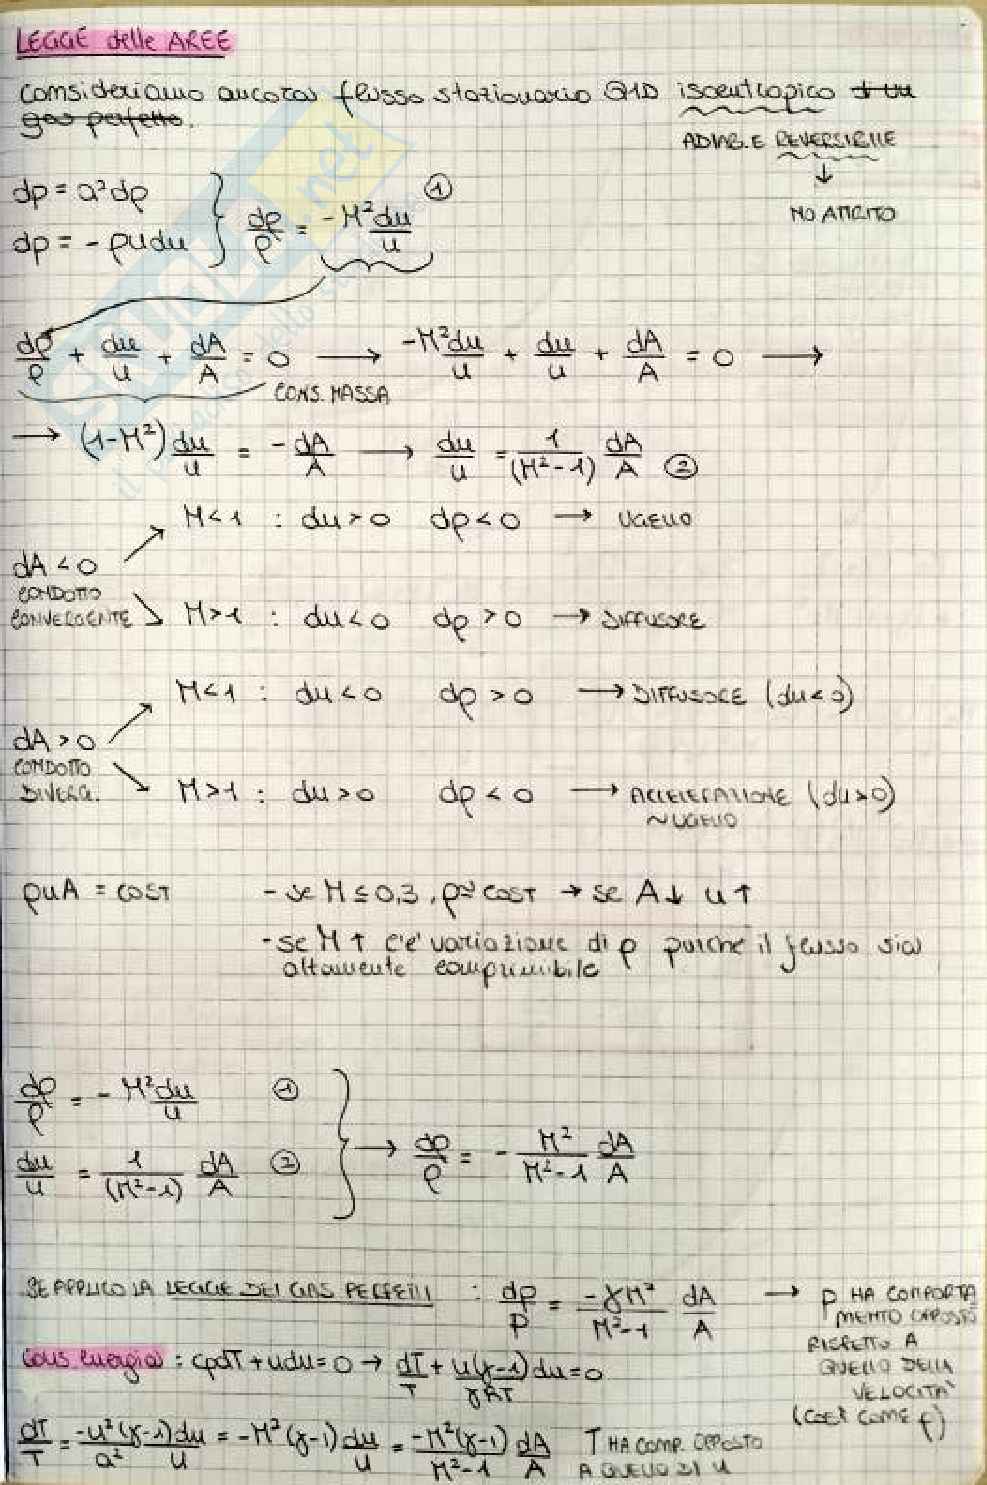 LEGGE delle AREE
consideriamo ancora flusso stazionario Q1D isoentropico di un
gas perfetto.
ADIAB. E REVERSIBILE
↓
NO ATTRITO
dp = a²dρ
dp = -ρudu } dρ/ρ = -M²du/u ①
dρ/ρ + du/u + dA/A = 0 → -M²du/u + du/u + dA/A = 0 →
CONS. MASSA
→ (1-M²)du/u = -dA/A → du/u = 1/(M²-1) dA/A ②
M<1 : du>0 dp<0 → UGELLO
dA<0
CONDOTTO
CONVERGENTE
M>1 : du<0 dp>0 → DIFFUSORE
M<1 : du<0 dp>0 → DIFFUSORE (du<0)
dA>0
CONDOTTO
DIVERG.
M>1 : du>0 dp<0 → ACCELERAZIONE (du>0)
~UGELLO
ρuA = COST - se M≤0,3, ρ≃COST → se A↓ u↑
- se M↑ c'e' variazione di ρ poiche il flusso sia
altamente comprimibile
dρ/ρ = -M²du/u ①
du/u = 1/(M²-1) dA/A ② } → dρ/ρ = - M²/(M²-1) dA/A
SE APPLICO LA LEGGE DEI GAS PERFETTI : dp/p = -γM²/(M²-1) dA/A → p HA COMPORTA
MENTO OPPOSTO
RISPETTO A
QUELLO DELLA
VELOCITA'
(COSI' COME ρ)
Cons. energia : cpdT + udu = 0 → dT/T + u(γ-1)/γRT du = 0
dT/T = -u²(γ-1)/a² du/u = -M²(γ-1)du/u = -M²(γ-1)/(M²-1) dA/A T HA COMP. OPPOSTO
A QUELLO DI u
SKUOLA.net